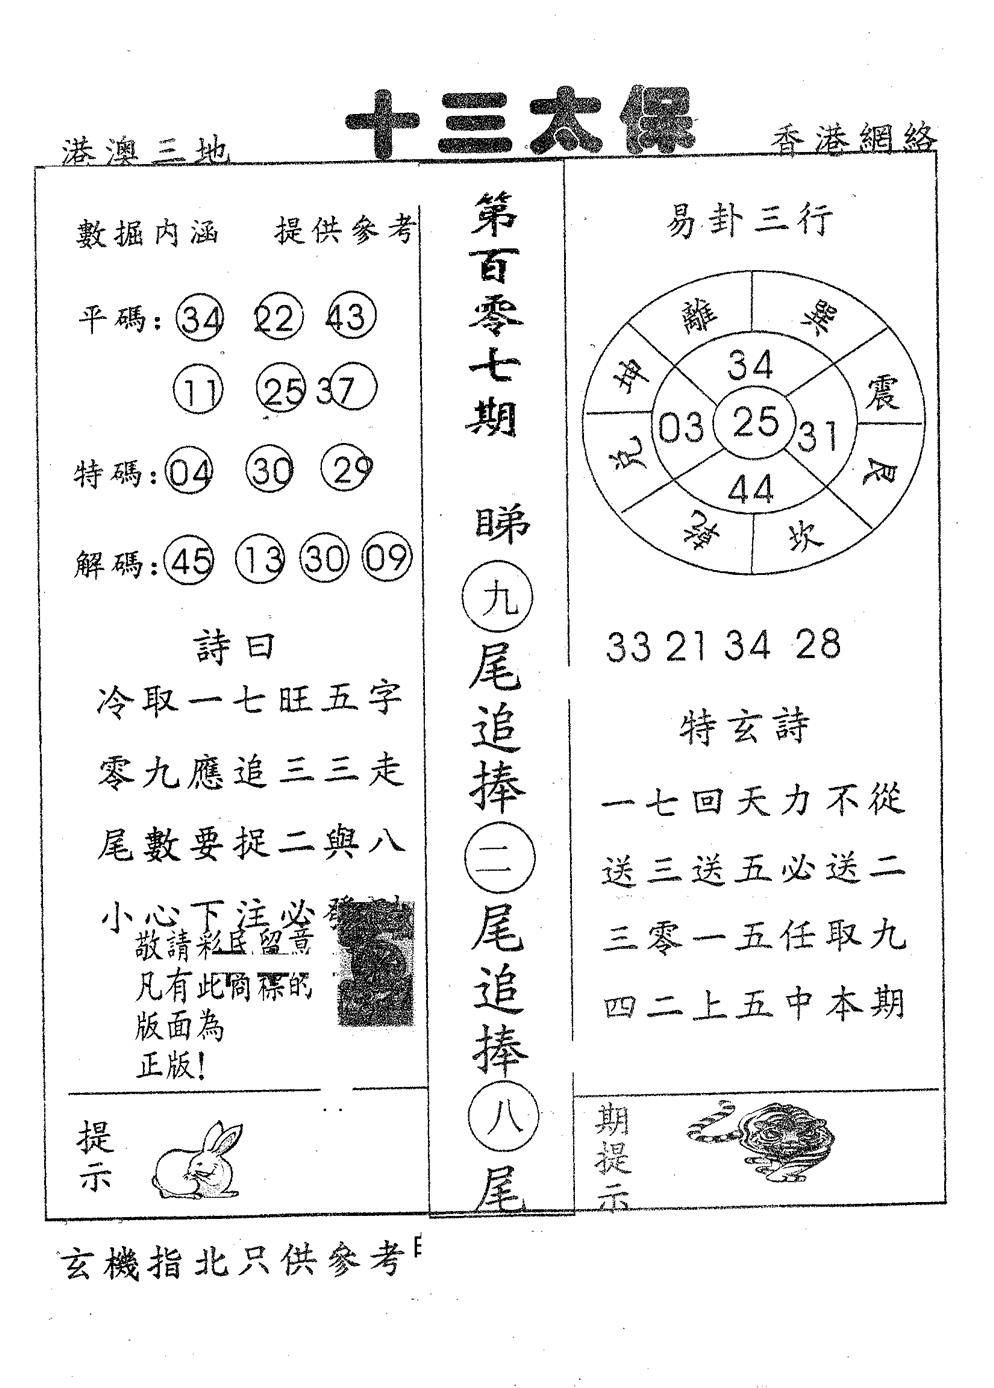 十三太保
港澳三地
香港網絡
數掘内涵 提供參考
平碼: 34 22 43
11 25 37
特碼: 04 30 29
解碼: 45 13 30 09
詩曰
冷取一七旺五字
零九應追三三走
尾數要捉二與八
小心下注必發
敬請彩民留意
凡有此商標的
版面為
正版!
提示
第百零七期
睇九尾追捧二尾追捧八尾
易卦三行
離 巽
坤 震
兌 艮
乾 坎
34
03 25 31
44
33 21 34 28
特玄詩
一七回天力不從
送三送五必送二
三零一五任取九
四二上五中本期
期提示
玄機指北只供參考